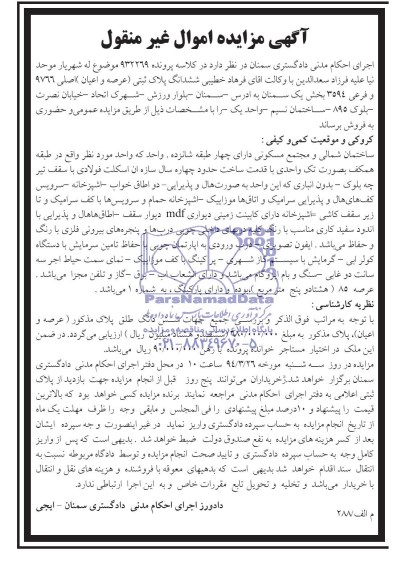 آگهی مزایده اموال غیر منقول
اجرای احکام مدنی دادگستری سمنان در نظر دارد در کلاسه پرونده ۹۳۲۲۶۹ موضوع له شهریار موحد
نیا علیه فرزاد سعدالدین با وکالت اقای فرهاد خطیبی ششدانگ پلاک ثبتی (عرصه و اعیان )اصلی ۹۷۶۶
و فرعی ۳۵۹۴ بخش یک سمنان به ادرس –سمنان –بلوار ورزش –شهرک اتحاد –خیابان نصرت
–بلوک ۸۹۵ –ساختمان نسیم –واحد یک –را با مشخصات ذیل از طریق مزایده عمومی و حضوری
به فروش برساند
کروکی و موقعیت کمی و کیفی :
ساختمان شمالی و مجتمع مسکونی دارای چهار طبقه شانزده . واحد که واحد مورد نظر واقع در طبقه
همکف بصورت تک واحدی با قدمت ساخت حدود چهاره سال سازه ان اسکلت فولادی با سقف تیر
چه بلوک – بدون انباری که این واحد به صورت هال و پذیرایی- دو اطاق خواب –اشپزخانه –سرویس
کف های هال و پذیرایی سرامیک و اتاق ها موزاییک –اشپزخانه حمام و سرویس ها با کف سرامیک و تا
زیر سقف کاشی =اشپزخانه دارای کابینت زمینی دیواری mdf دیوار سقف –اطاق هاهال و پذیرایی با
اندود سفید کاری مناسب با رنگ چوبی درب ها و پنجره های بیرونی فلزی با رنگ
و حفاظ می باشد . ایفون تصویری ورودی به اپارتمان چوبی با حفاظ تامین سرمایش با دستگاه
کولر ابی – گرمایش با سیستم گاز شهری – پارکینگ با کف موزاییک – نمای سمت حیاط اجر سه
سانت دو غابی –سنگ و بام ایزوگام می باشد و دارای انشعابات اب – برق –گاز و تلفن مجزا می باشد .
عرصه ۸۵ ( هشتادو پنج متر مربع )بوده و دارای پارکینگ به شماره ۱ می باشد .
نظریه کارشناسی :
با توجه به مراتب فوق الذکر و بررسی جمیع جهات شش دانگ طلق پلاک مذکور ( عرصه و
اعیان)، پلاک مذکور به مبلغ ریال ) ارزیابی می گردد. در ضمن
این ملک در اختیار مستاجر خوانده پرونده با رهن ۹۰/۰۰۰/۰۰۰ ریال می باشد.
مزایده در روز سه شنبه مورخه ۹۴/۳/۲۶ ساعت ۱۰ در محل دفتر اجرای احکام مدنی دادگستری
سمنان برگزار خواهد شد.خریداران می توانند پنج روز قبل از انجام مزایده جهت بازدید از پلاک
ثبتی اعلامی به دفتر اجرای احکام مدنی مراجعه نمایند برنده مزایده کسی خواهد بود که بالاترین
قیمت را پیشنهاد و ۱۰درصد مبلغ پیشنهادی را فی المجلس و مابقی وجه را ظرف مهلت یک ماه
از تاریخ انجام مزایده به حساب سپرده دادگستری واریز نماید در غیر اینصورت وجه سپرده ایشان
بعد از کسر هزینه های مزایده به نفع صندوق دولت ضبط خواهد شد . بدیهی است که پس از واریز
کامل وجه به حساب سپرده دادگستری و تایید صحت انجام مزایده و توسط دادگاه مربوطه نسبت به
انتقال سند اقدام خواهد شد بدیهی است که بدهی های معوقه با فروشنده و هزینه های نقل و انتقال
با خریدار می باشد و تخلیه و تحویل تابع مقررات خاص و به این اجرا ارتباطی ندارد.
دادورز اجرای احکام مدنی دادگستری سمنان - ایجی
م الف/۲۸۷
ParsNamadData
پایگاه اطلاع رسانی مناقصه و مزایده
۰۲۱-۸۸۳۴۹۶۷۰-۵